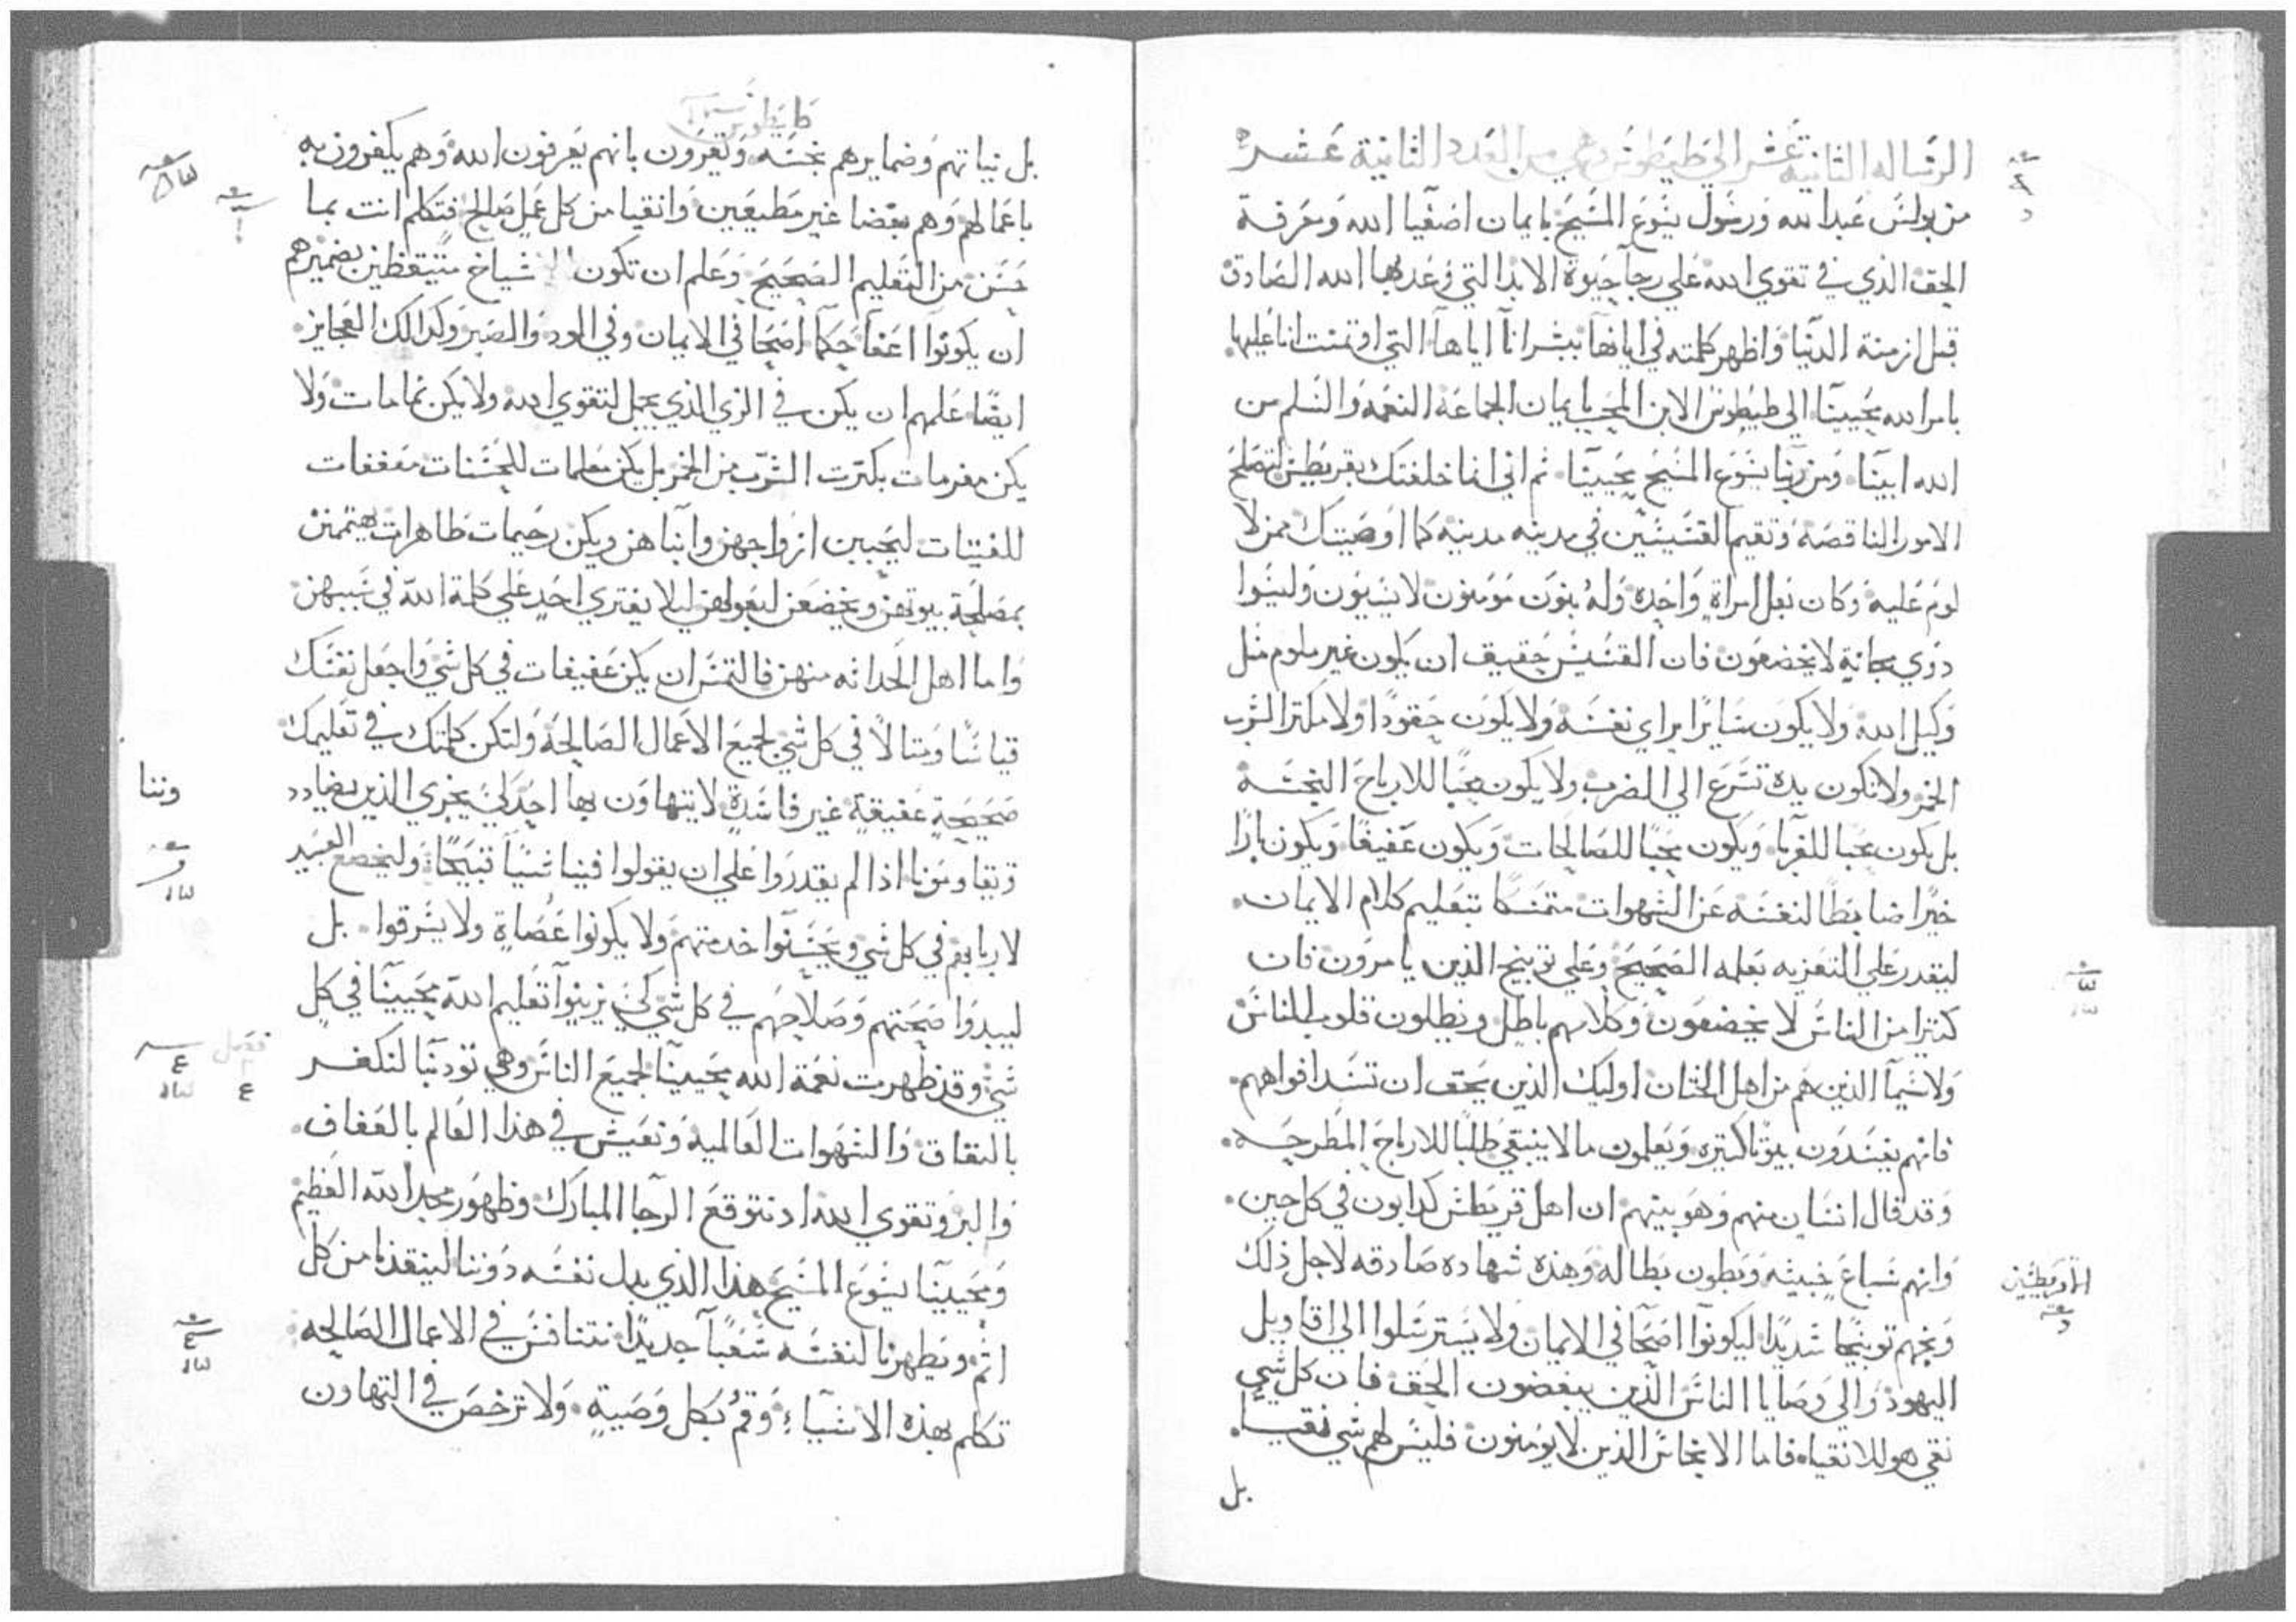 الرساله الثانية عشر الى طيطوس وهي من العدد الثانية عشر
من بولس عبد الله ورسول يسوع المسيح بايمان اصفيا الله ومعرفة
الحق الذي في تقوي الله علي رجآ حيوة الابد التي وعد بها الله الصادق
قبل ازمنة الدنيا واظهر كلمته في ابانها ببشرانا اياها التي اوتمنت انا عليها
بامر الله محيينا الى طيطوس الابن المحب بايمان الجماعة النعمة والسلم من
الله ابينا ومن ربنا يسوع المسيح محيينا ثم اني انما خلفتك بقريطش لتصلح
الامور الناقصة وتقيم القسيسين في مدينه مدينه كما اوصيتك ممن لا
لوم عليه وكان بعل امراة واحده وله بنون مومنون لا يسبون وليسوا
ذوي مجانة لا يخضعون فان القسيس حقيق ان يكون غير ملوم مثل
وكيل الله ولا يكون سايرا براي نفسه ولا يكون حقودا ولا مكثرا لشرب
الخمر ولا تكون يده تسرع الي الضرب ولا يكون محبا للارباح النجسة
بل يكون محبا للغربا ويكون محبا للصالحات ويكون عفيفا ويكون بارا
خيرا ضابطا لنفسه عن الشهوات متمسكا بتعليم كلام الايمان
ليقدر علي التعزيه بعلمه الصحيح وعلي توبيخ الذين يامرون فان
كثيرا من الناس لا يخضعون وكلامهم باطل ويظلون قلوب الناس
ولاسيما الذين هم من اهل الختان اوليك الذين يحق ان تسد افواههم
فانهم يفسدون بيوتا كثيره ويعلمون ما لا ينبغي طلبا للارباح المطرحه
وقد قال انسان منهم وهو بينهم ان اهل قريطش كدابون في كل حين
وانهم سباع خبيثه وبطون بطاله وهذه شهاده صادقه لاجل ذلك
وبخهم توبيخا شديدا ليكونوا اصحا في الايمان ولا يسترسلوا الي اقاويل
اليهود والي وصايا الناس الذين يبغضون الحق فان كل شي
نقي هو للانقياء فاما الانجاس الذين لا يومنون فليس لهم شي نقيا
بل
طيطوس
بل نياتهم وضمايرهم نجسه ويقرون بانهم يعرفون الله وهم يكفرون به
باعمالهم وهم بغضا غير مطيعين وانقيا من كل عمل صالح فتكلم انت بما
حسن من التعليم الصحيح وعلم ان تكون الاشياخ متيقظين بضميرهم
ان يكونوا اعفآ حكمآ اصحا في الايمان وفي الود والصبر وكذالك العجايز
ايضا علمهم ان يكن في الزي الذي يجمل لتقوي الله ولا يكن نمامات ولا
يكن مغرمات بكثرت الشرب من الخمر بل يكن معلمات للحسنات معففات
للفتيات ليحببن ازواجهن وابناهن ويكن رحيمات طاهرات يهتممن
بمصلحة بيوتهن ويخضعن لبعولهن ليلا يفتري احد علي كلمة الله في سببهن
واما اهل الحداثه منهن فالتمس ان يكن عفيفات في كل شي واجعل نفسك
قياسا ومثالا في كل شي لجميع الاعمال الصالحة ولتكن كلمتك في تعليمك
صحيحة عفيفة غير فاسدة لا يتهاون بها احد لكي يخزي الذين يضادد
ويقاومونا اذا لم يقدروا علي ان يقولوا فينا شيا قبيحا وليخضع العبيد
لاربابهم في كل شي ويحسنوا خدمتهم ولا يكونوا عصاة ولا يسرقوا بل
ليبدوا صحتهم وصلاحهم في كل شي لكي يزينوا تعليم الله محيينا في كل
شي وقد ظهرت نعمة الله محيينا لجميع الناس وهي تودبنا لنكفر
بالنفاق والشهوات العالمية ونعيش في هذا العالم بالعفاف
والبر وتقوي الله اذ نتوقع الرجا المبارك وظهور مجد الله العظيم
ومحيينا يسوع المسيح هذا الذي بدل نفسه دوننا لينقذنا من كل
اثم ويطهرنا لنفسه شعبا جديدا نتنافس في الاعمال الصالحه
تكلم بهذه الاشياء وقم بكل وصية ولا ترخص في التهاون
فصل